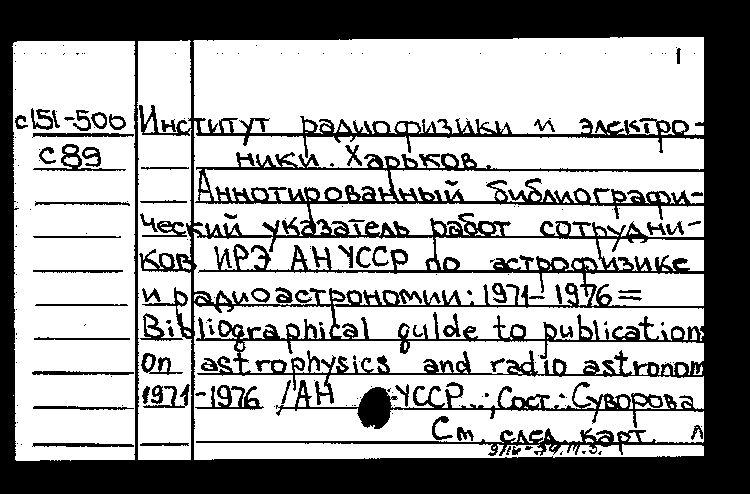 1
c151-500 Институт радиофизики и электро-
с89 ники. Харьков.
Аннотированный библиографи-
ческий указатель работ сотрудни-
ков ИРЭ АН УССР по астрофизике
и радиоастрономии: 1971-1976=
Bibliographical guide to publications
on astrophysics and radio astronom
1971-1976 /АН УССР...; Сост.: Суворова
См. след. карт.